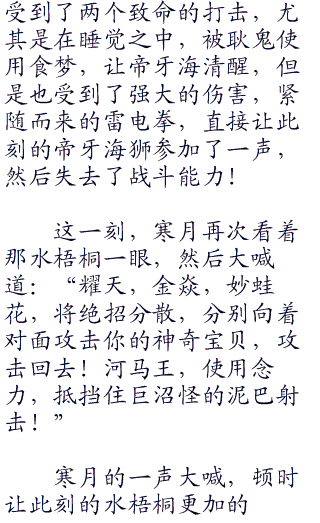 受到了两个致命的打击，尤
其是在睡觉之中，被耿鬼使
用食梦，让帝牙海清醒，但
是也受到了强大的伤害，紧
随而来的雷电拳，直接让此
刻的帝牙海狮参加了一声，
然后失去了战斗能力！
这一刻，寒月再次看着
那水梧桐一眼，然后大喊
道：“耀天，金焱，妙蛙
花，将绝招分散，分别向着
对面攻击你的神奇宝贝，攻
击回去！河马王，使用念
力，抵挡住巨沼怪的泥巴射
击！”
寒月的一声大喊，顿时
让此刻的水梧桐更加的